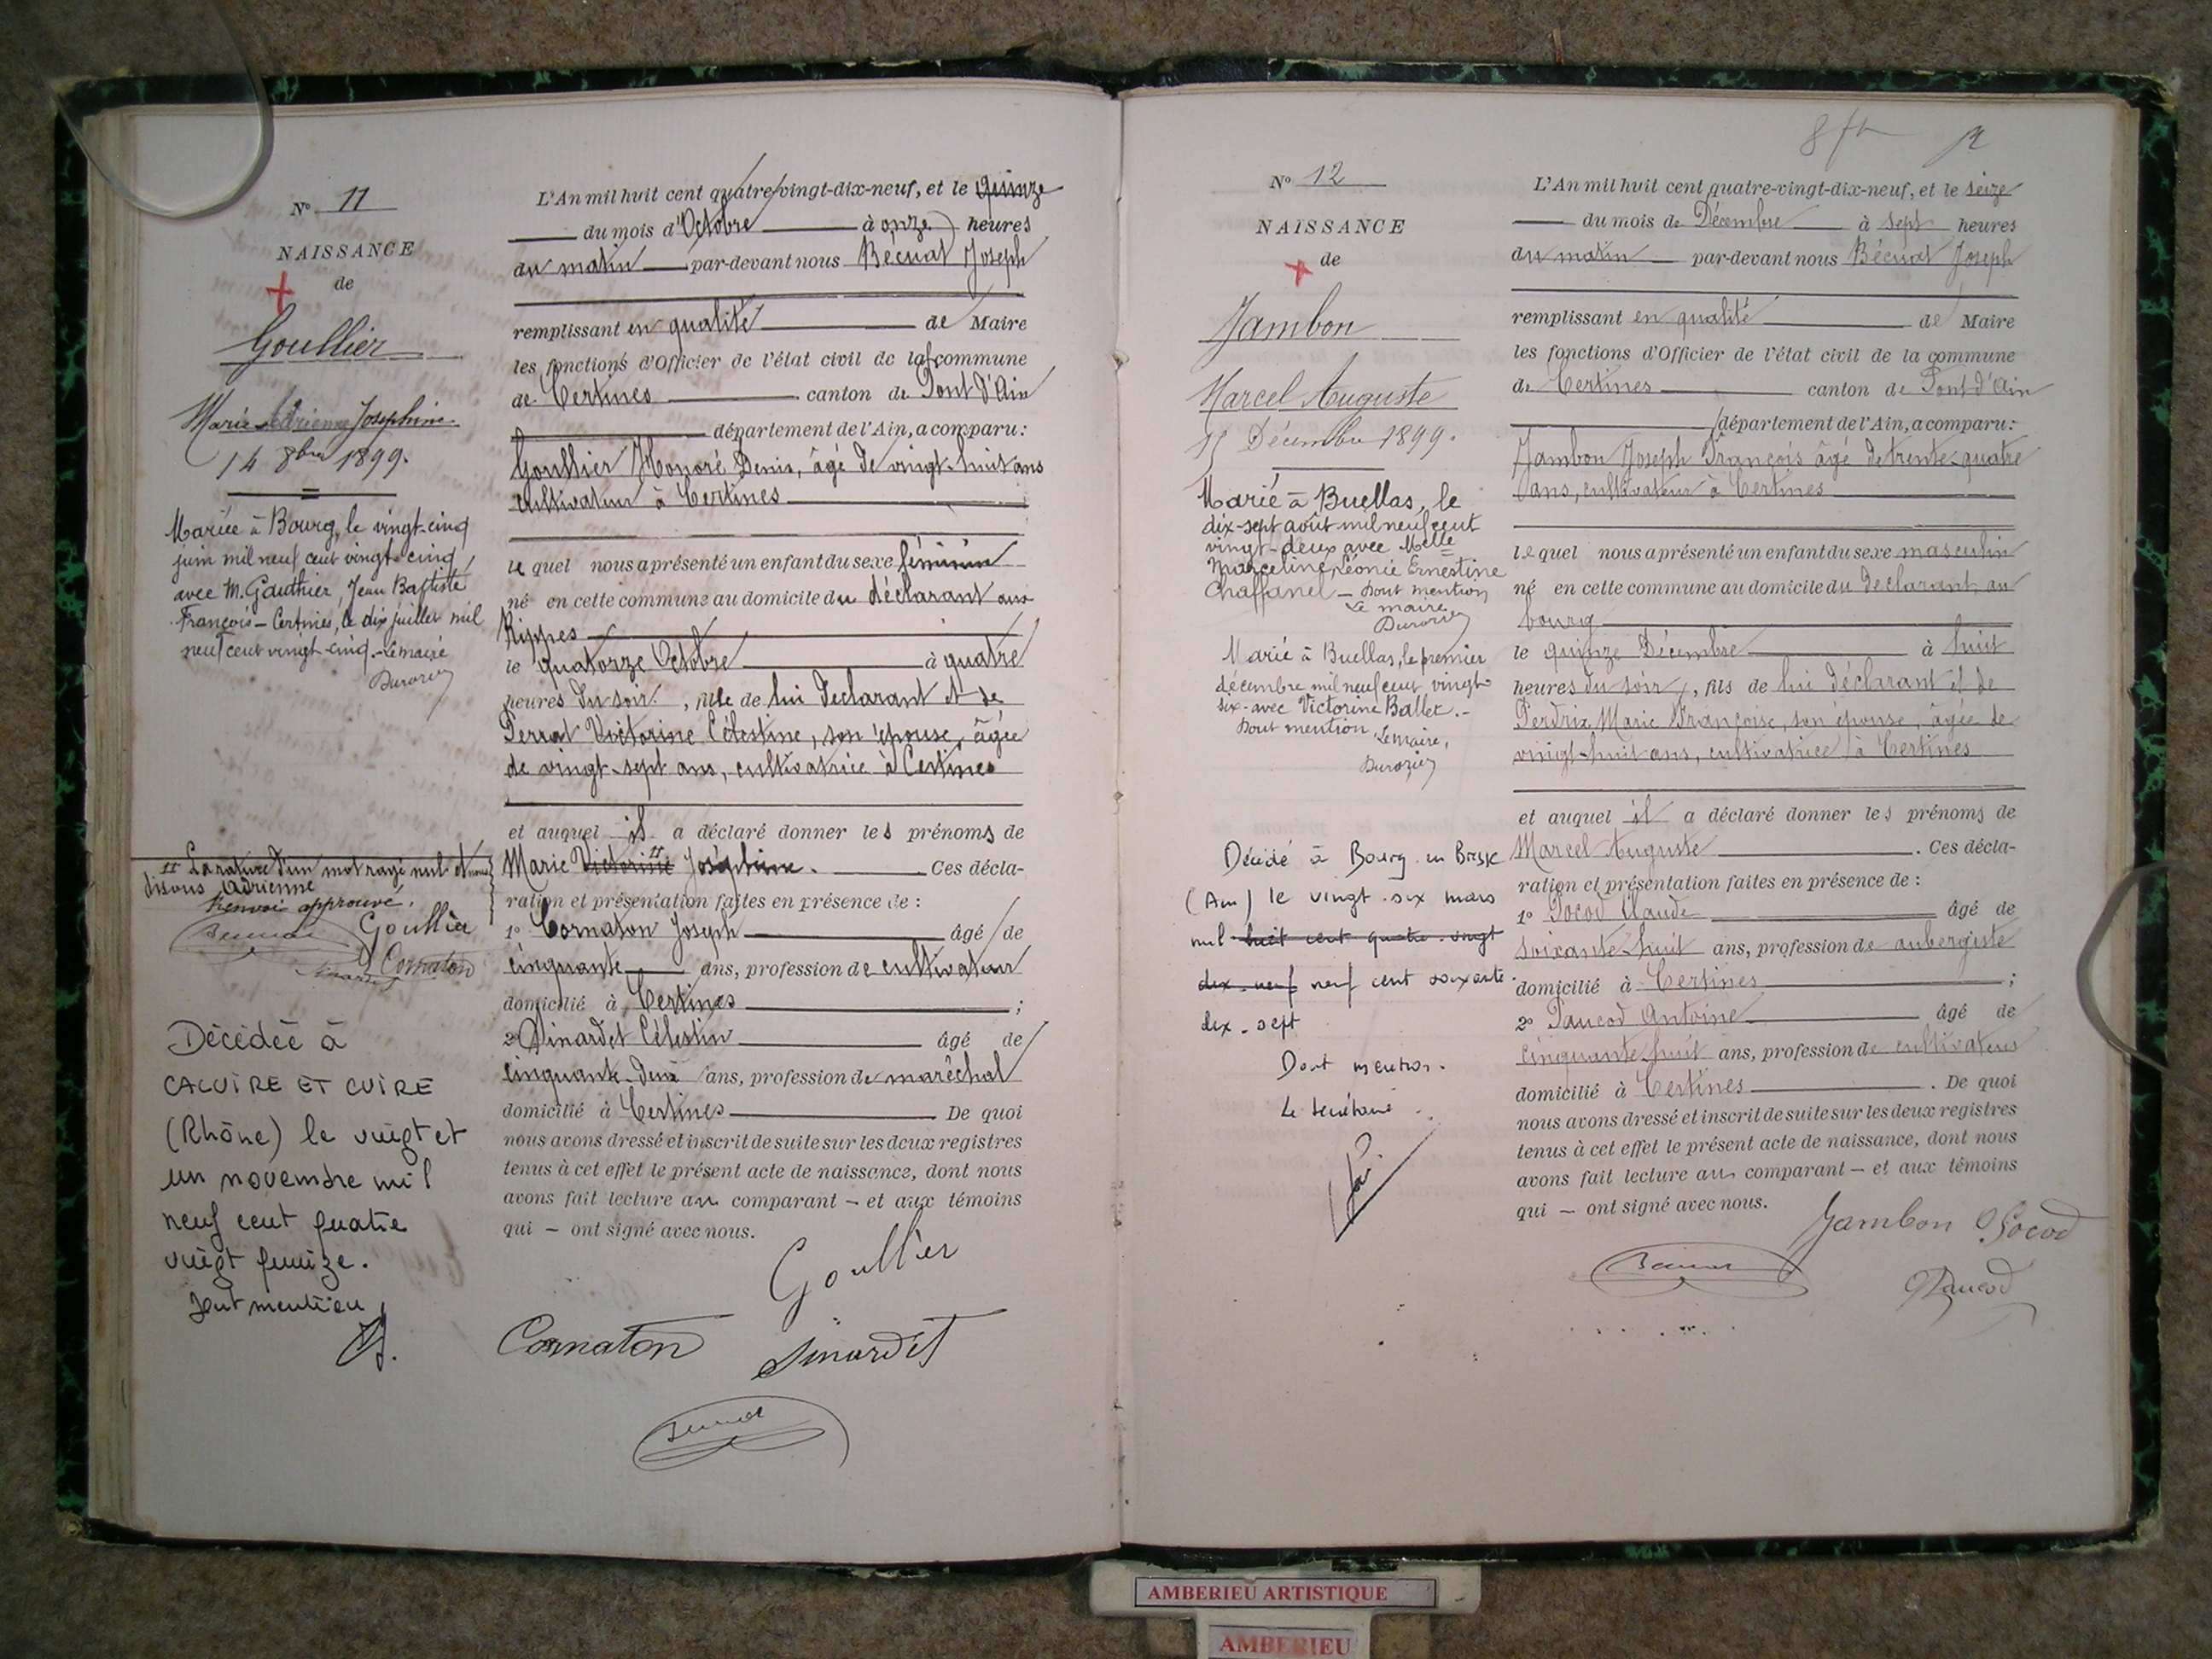 N° 11
NAISSANCE
de
Goullier
Marie Adrienne Joséphine
14 8bre 1899.
Mariée à Bourg, le vingt-cinq
juin mil neuf cent vingt-cinq,
avec M. Gauthier, Jean Baptiste
François – Certines, le dix juillet mil
neuf cent vingt-cinq. – Le maire
Durozier
La rature d'un mot rayé nul et nous
disons Adrienne
Renvoi approuvé.
Goullier
Cornaton
Décédée à
CALUIRE ET CUIRE
(Rhône) le vingt et
un novembre mil
neuf cent quatre
vingt quinze.
Dont mention
L'An mil huit cent quatre-vingt-dix-neuf, et le Quinze
du mois d'Octobre à onze heures
du matin par-devant nous Bécuat Joseph
remplissant en qualité de Maire
les fonctions d'Officier de l'état civil de la commune
de Certines canton de Pont d'Ain
département de l'Ain, a comparu:
Goullier Honoré Denis, âgé de vingt-huit ans
cultivateur à Certines
le quel nous a présenté un enfant du sexe féminin
né en cette commune au domicile du déclarant aux
Rippes
le quatorze Octobre à quatre
heures du soir, fille de lui déclarant et de
Perrat Victorine Célestine, son épouse, âgée
de vingt-sept ans, cultivatrice à Certines
et auquel il a déclaré donner les prénoms de
Marie Victorine Joséphine. Ces décla-
ration et présentation faites en présence de :
1° Cornaton Joseph âgé de
cinquante ans, profession de cultivateur
domicilié à Certines ;
2° Sinardet Célestin âgé de
cinquante-deux ans, profession de maréchal
domicilié à Certines De quoi
nous avons dressé et inscrit de suite sur les deux registres
tenus à cet effet le présent acte de naissance, dont nous
avons fait lecture au comparant – et aux témoins
qui – ont signé avec nous.
Goullier
Cornaton Sinardet
N° 12
NAISSANCE
de
Jambon
Marcel Auguste
15 Décembre 1899.
Marié à Buellas, le
dix-sept août mil neuf cent
vingt-deux avec Melle
Marceline, Léonie Ernestine
Chaffanel – Dont mention
Le maire
Durozier
Marié à Buellas, le premier
décembre mil neuf cent vingt-
six - avec Victorine Ballet. -
Dont mention Le maire,
Durozier
Décédé à Bourg en Bresse
(Ain) le vingt six mars
mil huit cent quatre-vingt
dix-neuf neuf cent soixante
dix-sept
Dont mention.
Le secrétaire
L'An mil huit cent quatre-vingt-dix-neuf, et le seize
du mois de Décembre à sept heures
du matin par-devant nous Bécuat Joseph
remplissant en qualité de Maire
les fonctions d'Officier de l'état civil de la commune
de Certines canton de Pont d'Ain
département de l'Ain, a comparu:
Jambon Joseph François âgé de trente-quatre
ans, cultivateur à Certines
lequel nous a présenté un enfant du sexe masculin
né en cette commune au domicile du déclarant, au
bourg
le quinze Décembre à huit
heures du soir, fils de lui déclarant et de
Perdrix Marie Françoise, son épouse, âgée de
vingt-huit ans, cultivatrice à Certines
et auquel il a déclaré donner les prénoms de
Marcel Auguste . Ces décla-
ration et présentation faites en présence de :
1° Pocod Claude âgé de
soixante-huit ans, profession de aubergiste
domicilié à Certines ;
2° Paucod Antoine âgé de
cinquante-huit ans, profession de cultivateur
domicilié à Certines . De quoi
nous avons dressé et inscrit de suite sur les deux registres
tenus à cet effet le présent acte de naissance, dont nous
avons fait lecture au comparant – et aux témoins
qui – ont signé avec nous.
Jambon Pocod
Paucod
AMBERIEU ARTISTIQUE
AMBERIEU